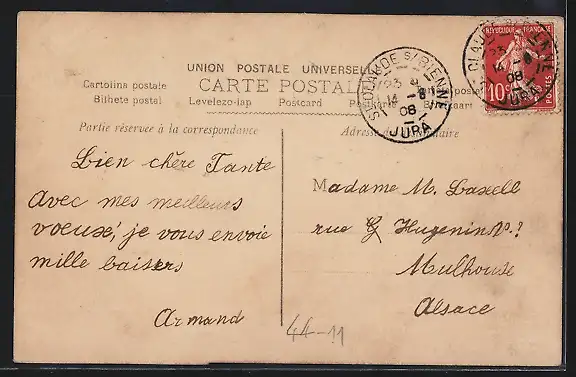 UNION POSTALE UNIVERSELLE
CARTE POSTALE
Cartolina postale
Bilhete postal
Levelezo-lap
Postcard
Partie réservée à la correspondance
Adresse du
Bien chère Tante
avec mes meilleurs
voeux, je vous envoie
mille baisers
Armand
Madame M. Laxell
rue G Hugenin
Mulhouse
Alsace
44-11
St CLAUDE S/ BIENNE
14 -8
08
JURA
REPUBLIQUE FRANÇAISE
10
POSTES
CLAUDE S/ BIENNE
14 -8
08
JURA